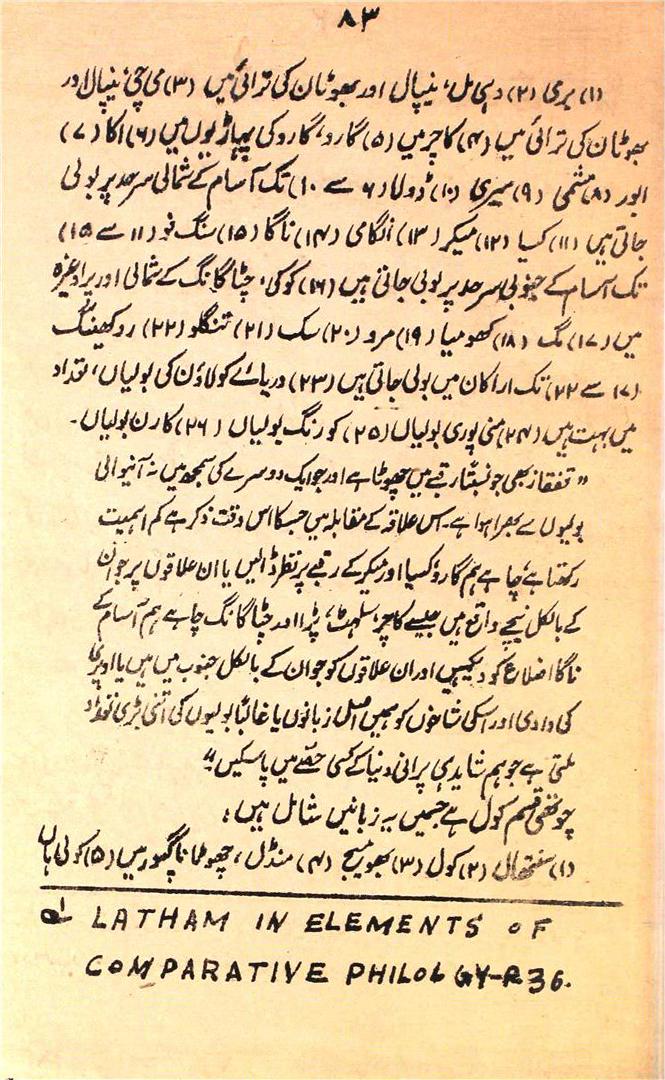 ۸۳
(۱) بری (۲) دہی مل، نیپال اور بھوٹان کی ترائی میں (۳) می چی نیپال اور
بھوٹان کی ترائی میں (۴) کاچر میں (۵) گارو، گارو کی پہاڑیوں میں (۶) اکا (۷)
ابور (۸) مشمی (۹) سیری (۱۰) ڈولا (۶ سے ۱۰) تک آسام کے شمالی سرحد پر بولی
جاتی ہیں (۱۱) کسیا (۱۲) میکر (۱۳) انگامی (۱۴) ناگا (۱۵) سنگ فو (۱۱ سے ۱۵)
تک آسام کے جنوبی سرحد پر بولی جاتی ہیں (۱۶) کوکی، چٹاگانگ کے شمالی اور برا وغیرہ
میں (۱۷) مگ (۱۸) کھومیا (۱۹) مرو (۲۰) سک (۲۱) تنگلو (۲۲) روکھینگ
(۱۷ سے ۲۲) تک اراکان میں بولی جاتی ہیں (۲۳) دریائے کولاڈن کی بولیاں، تعداد
میں بہت ہیں (۲۴) منی پوری بولیاں (۲۵) کورنگ بولیاں (۲۶) کارن بولیاں۔
”قفقاز بھی جو نسبتاً رقبے میں چھوٹا ہے اور جو ایک دوسرے کی سمجھ میں نہ آنیوالی
بولیوں سے بھرا ہوا ہے۔ اس علاقہ کے مقابلہ میں جسکا اس وقت ذکر ہے کم اہمیت
رکھتا ہے، چاہے ہم گارو، کسیا اور میکر کے رقبے پر نظر ڈالیں یا ان علاقوں پر جو ان
کے بالکل نیچے واقع ہیں جیسے کاچر، سلہٹ، پڑا اور چٹاگانگ چاہے ہم آسام کے
ناگا اضلاع کو دیکھیں اور ان علاقوں کو جو ان کے بالکل جنوب میں ہیں یا
کی وادی اور اسکی شاخوں کو ہمیں اصل زبانوں یا غالباً بولیوں کی اتنی بڑی تعداد
ملتی ہے جو ہم شاید ہی پرانی دنیا کے کسی حصے میں پا سکیں“
چوتھی قسم کول ہے جسمیں یہ زبانیں شامل ہیں:
(۱) سنتھال (۲) کول (۳) بھومیج (۴) منڈل، چھوٹا ناگپور میں (۵) کولی ہاں
LATHAM IN ELEMENTS OF
COMPARATIVE PHILOLGY–P.36.